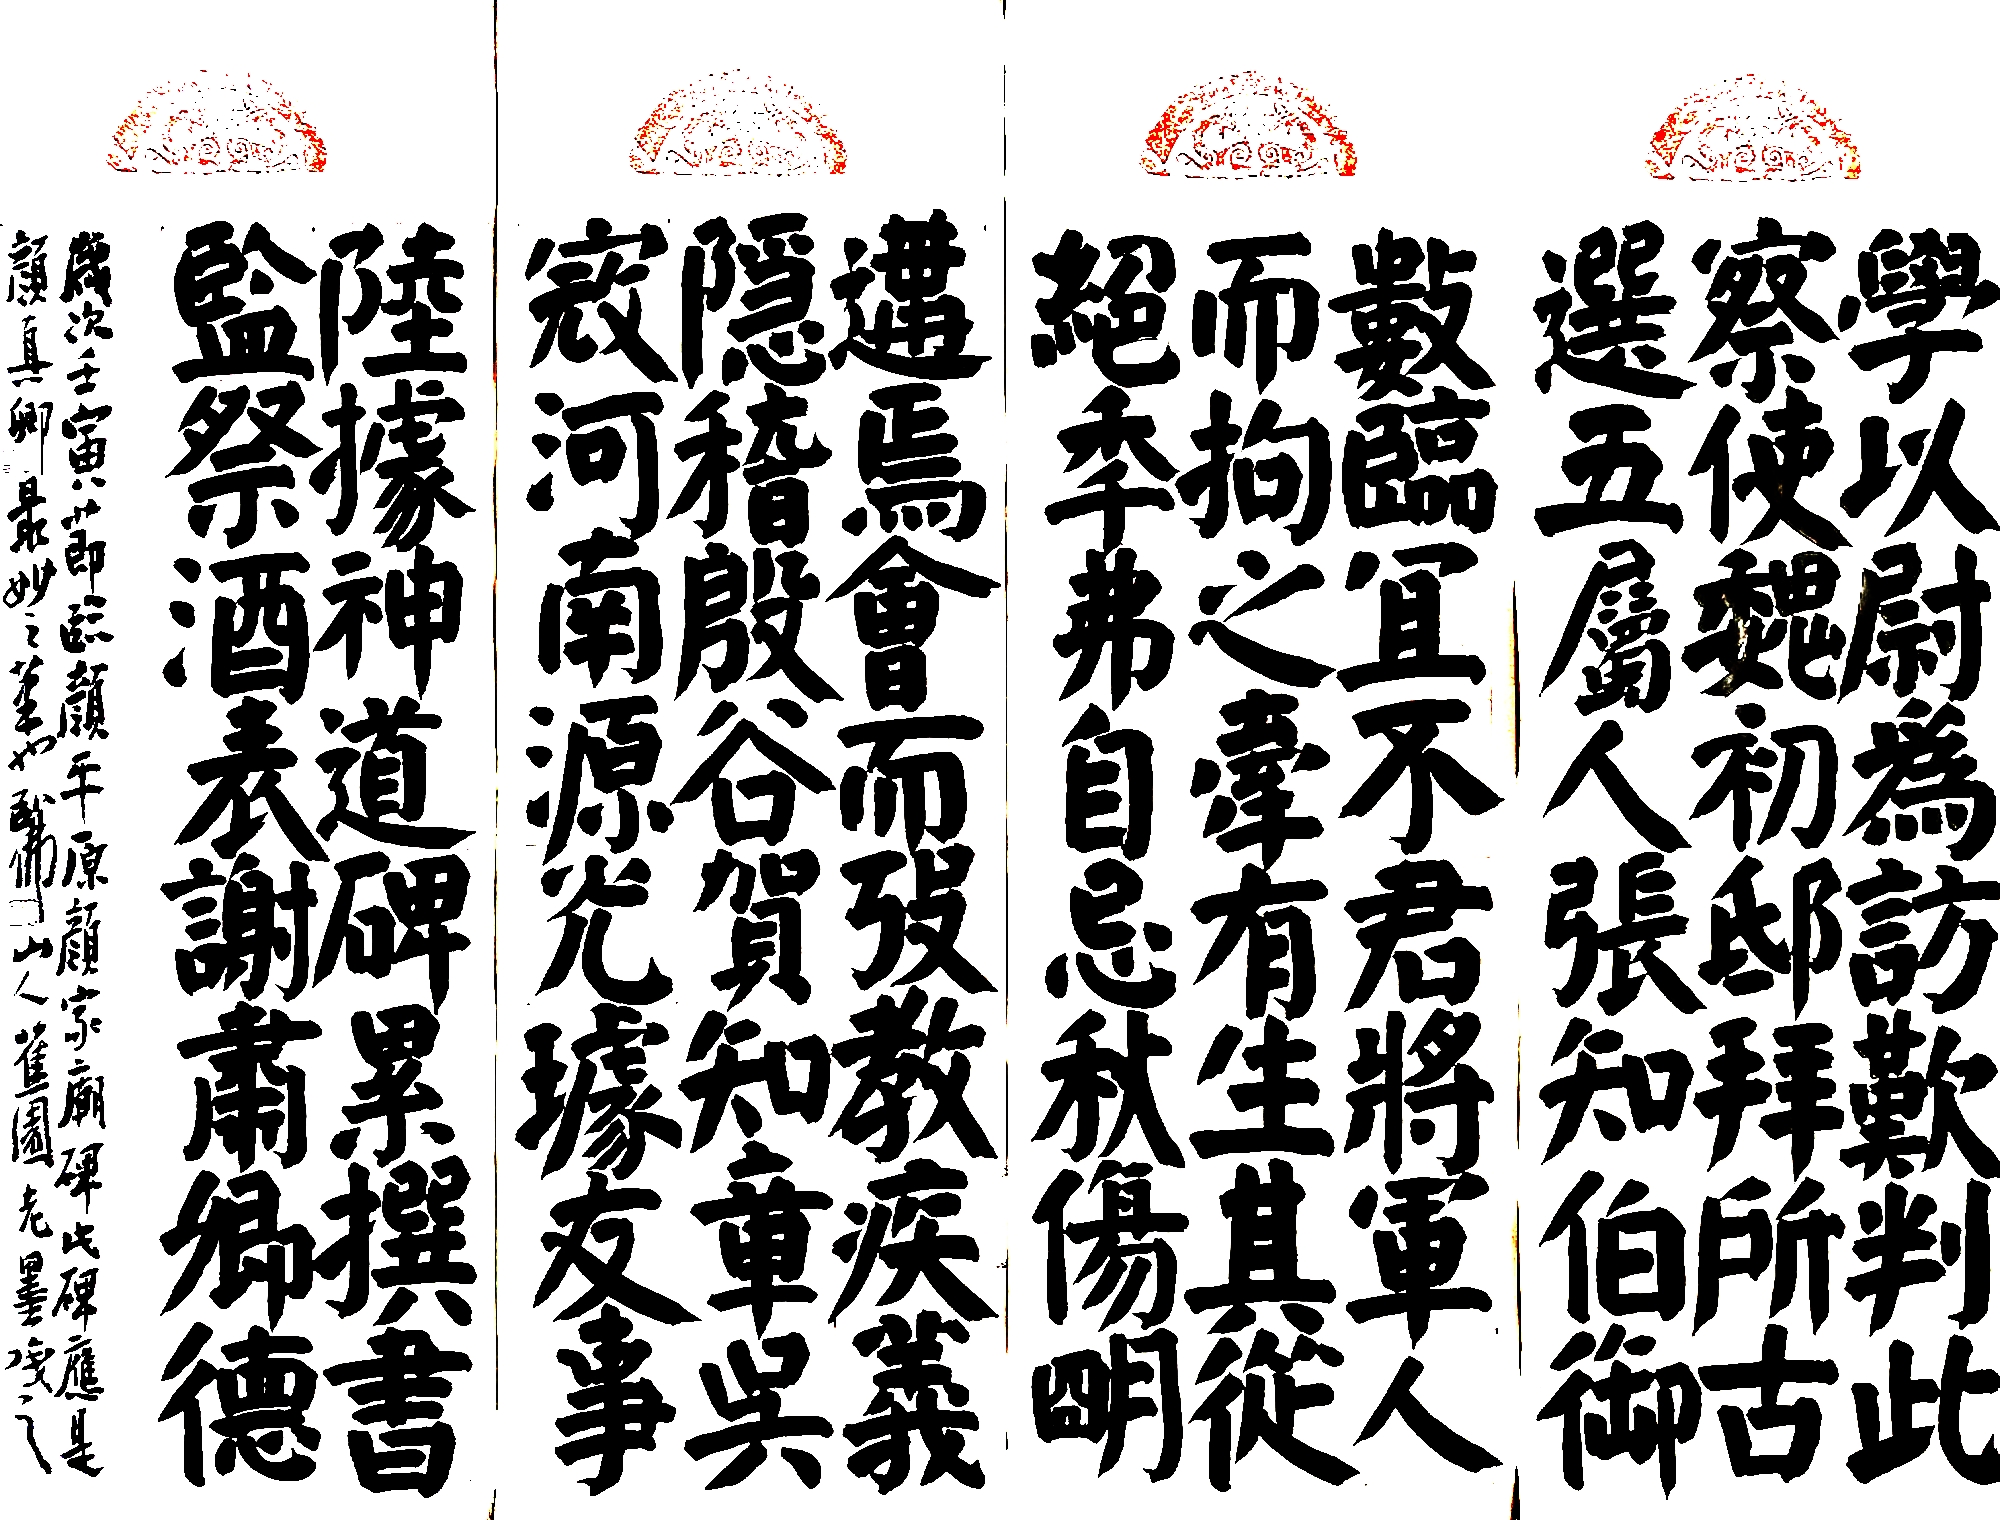 學以尉爲訪歎判此
察使魏初邸拜所古
選五屬人張知伯御
數臨冝不君將軍人
而拘之牽有生其從
絕季弗自忌秋傷明
遘焉會而弢教疾義
隱稽殷谷賀知童吳
寂河南源光璩友事
陸據神道碑累撰書
監祭酒表謝肅卿德
歲次壬寅八節臨顏平原顏家廟碑此碑應是
顏真卿最妙之筆也 山人蕉園老墨戔之